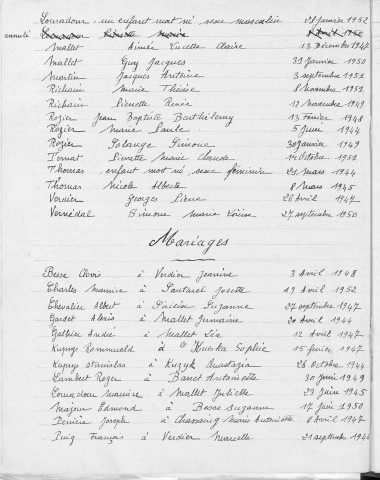 Louradour, un enfant mort né, sexe masculin 28 janvier 1952
annulé Louradour
Mallet Aimée Lucette Claire 13 Décembre 1947
Mallet Guy Jacques 31 janvier 1950
Martin Jacques Antoine 3 septembre 1951
Richain Marie Thérèse 8 Novembre 1951
Richain Pierrette Renée 12 novembre 1949
Rozier Jean Baptiste Barthélemy 13 Février 1948
Rozier Marie Paule 5 juin 1944
Rozier Solange Simone 30 janvier 1949
Pierrette Marie Claude 14 Octobre 1951
Thomas, enfant mort né, sexe féminin 21 mars 1944
Thomas Nicole Alberte 8 Mars 1945
Verdier Georges Pierre 26 Avril 1947
Vernédal Simone Marie Louise 27 septembre 1950
Mariages
Besse Clovis à Verdier Jeanine 3 Avril 1948
Charles Maurice à Sautarel Josette 19 Avril 1952
Chevalier Albert à Suzanne 27 septembre 1947
Gardet Alexis à Mallet Germaine 20 Avril 1944
Galtier André à Mallet Léa 12 Avril 1947
Kuprys Rommuald à Sophie 15 février 1947
Kuprys stanislas à Kuzyk Anastazia 28 Octobre 1944
Lambert Roger à Banet Antoinette 30 juin 1949
Louradour Maurice à Mallet Juliette 23 juin 1945
Majour Edmond à Besse Suzanne 17 juin 1950
Joseph à Chassang Marie Antoinette 8 Avril 1947
Puig François à Verdier Marcelle 21 septembre